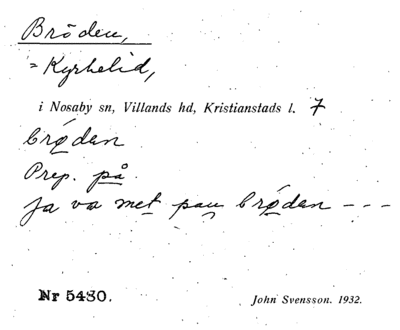 Bröden,
= Kyrkelid,
i Nosaby sn, Villands hd, Kristianstads l. 7
brødan
Prep. på.
ja va met pau brødan - - -
Nr 5480.
John Svensson. 1932.